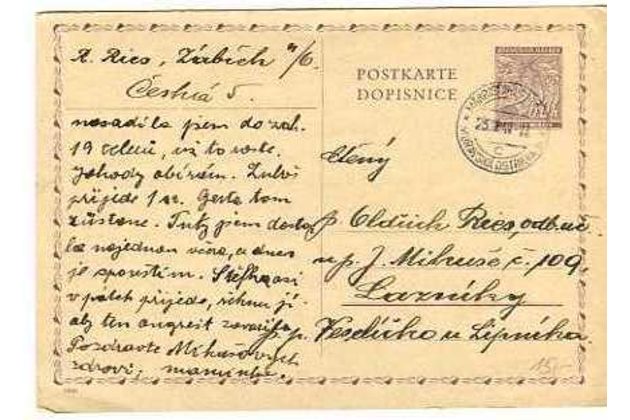 R. Ries, Zábřeh n/O.
Česká 5.
nasadila jsem do zah.
19 celerů, už to roste.
Jahody obírám. Luboš
přijede 1 sr. Gesta tam
zůstane. Tuty jsem dostala
najednou včera, a dnes
je spouštím. Štefka asi
v pátek přijede, řeknu jí
aby ten angrešt zavařila
Pozdravte Mikušových
zdroví, maminka.
POSTKARTE
DOPISNICE
Ctěný
p. Oldřich Ries, odb. uč.
u p. J. Mikuše č. 109,
Lazníky
p. p. Veselíčko u Lipníka.
15,-